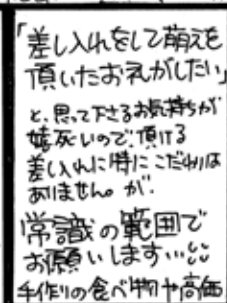 「差し入れをして萌えを
頂いたお礼がしたい」
と、思って下さるお気持ちが
嬉死いので、頂ける
差し入れに特にこだわりは
ありません。が、
常識の範囲で
お願いします…
手作りの食べ物や高価